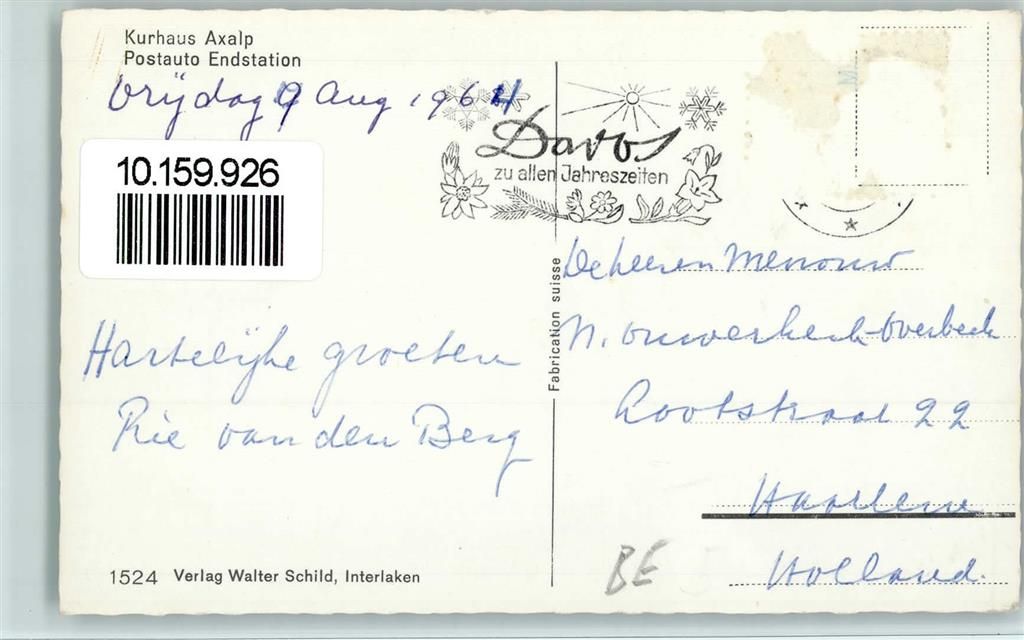 Kurhaus Axalp
Postauto Endstation
Vrijdag 9 Aug 1964
10.159.926
Davos
zu allen Jahreszeiten
Fabrication suisse
Hartelijke groeten
Rie van den Berg
De heer en Mevrouw
N. Ouwerkerk-Overbeek
Lootstraat 22
Haarlem
Holland.
BE
1524 Verlag Walter Schild, Interlaken